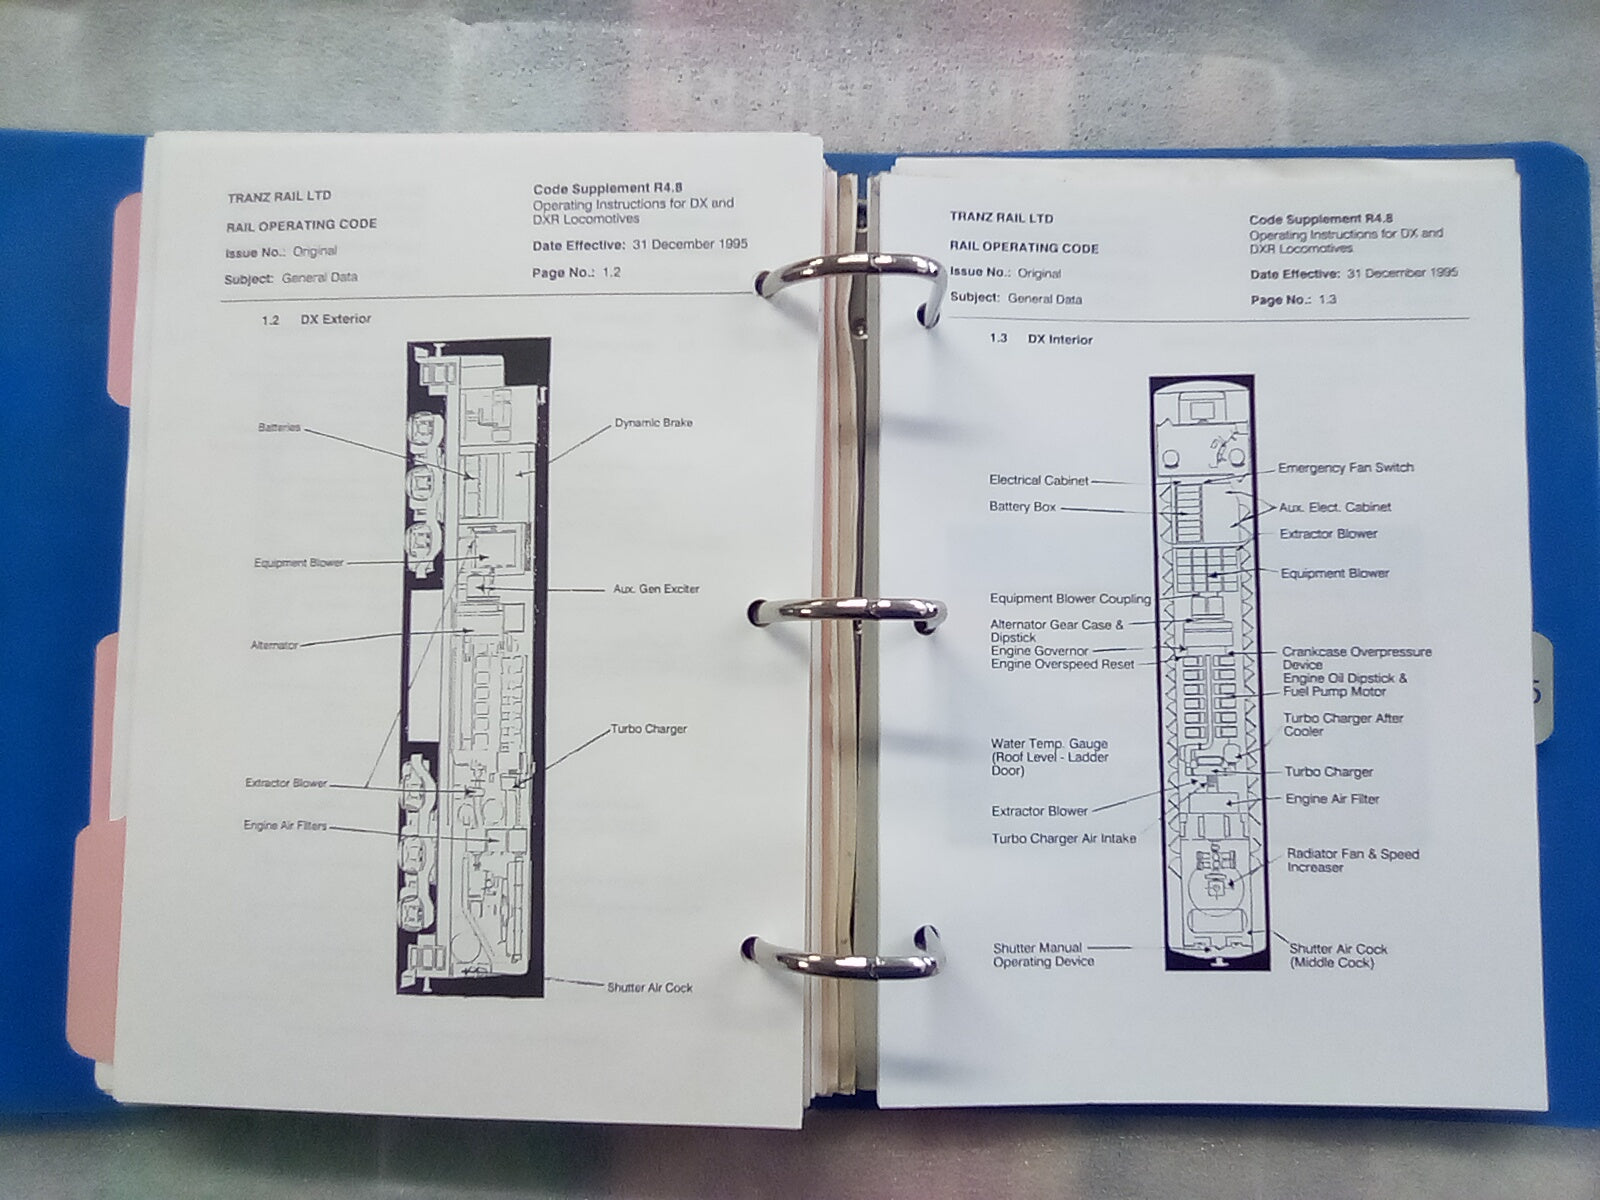 TRANZ RAIL LTD
RAIL OPERATING CODE
Issue No.: Original
Subject: General Data
Code Supplement R4.8
Operating Instructions for DX and
DXR Locomotives
Date Effective: 31 December 1995
Page No.: 1.2
1.2 DX Exterior
Batteries
Dynamic Brake
Equipment Blower
Aux. Gen Exciter
Alternator
Turbo Charger
Extractor Blower
Engine Air Filters
Shutter Air Cock
TRANZ RAIL LTD
RAIL OPERATING CODE
Issue No.: Original
Subject: General Data
Code Supplement R4.8
Operating Instructions for DX and
DXR Locomotives
Date Effective: 31 December 1995
Page No.: 1.3
1.3 DX Interior
Electrical Cabinet
Battery Box
Equipment Blower Coupling
Alternator Gear Case &
Dipstick
Engine Governor
Engine Overspeed Reset
Water Temp. Gauge
(Roof Level - Ladder
Door)
Extractor Blower
Turbo Charger Air Intake
Shutter Manual
Operating Device
Emergency Fan Switch
Aux. Elect. Cabinet
Extractor Blower
Equipment Blower
Crankcase Overpressure
Device
Engine Oil Dipstick &
Fuel Pump Motor
Turbo Charger After
Cooler
Turbo Charger
Engine Air Filter
Radiator Fan & Speed
Increaser
Shutter Air Cock
(Middle Cock)
5